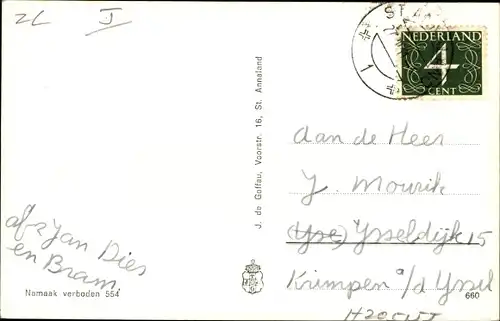 ZL J
ST. A
NEDERLAND
4
CENT
1
J. de Goffau, Voorstr. 16, St. Annaland
Aan de Heer
J. Mourik
(Yse) Ysseldijk 15
Krimpen a/d Yssel
afz Jan Dies
en Bram.
Namaak verboden 554
660